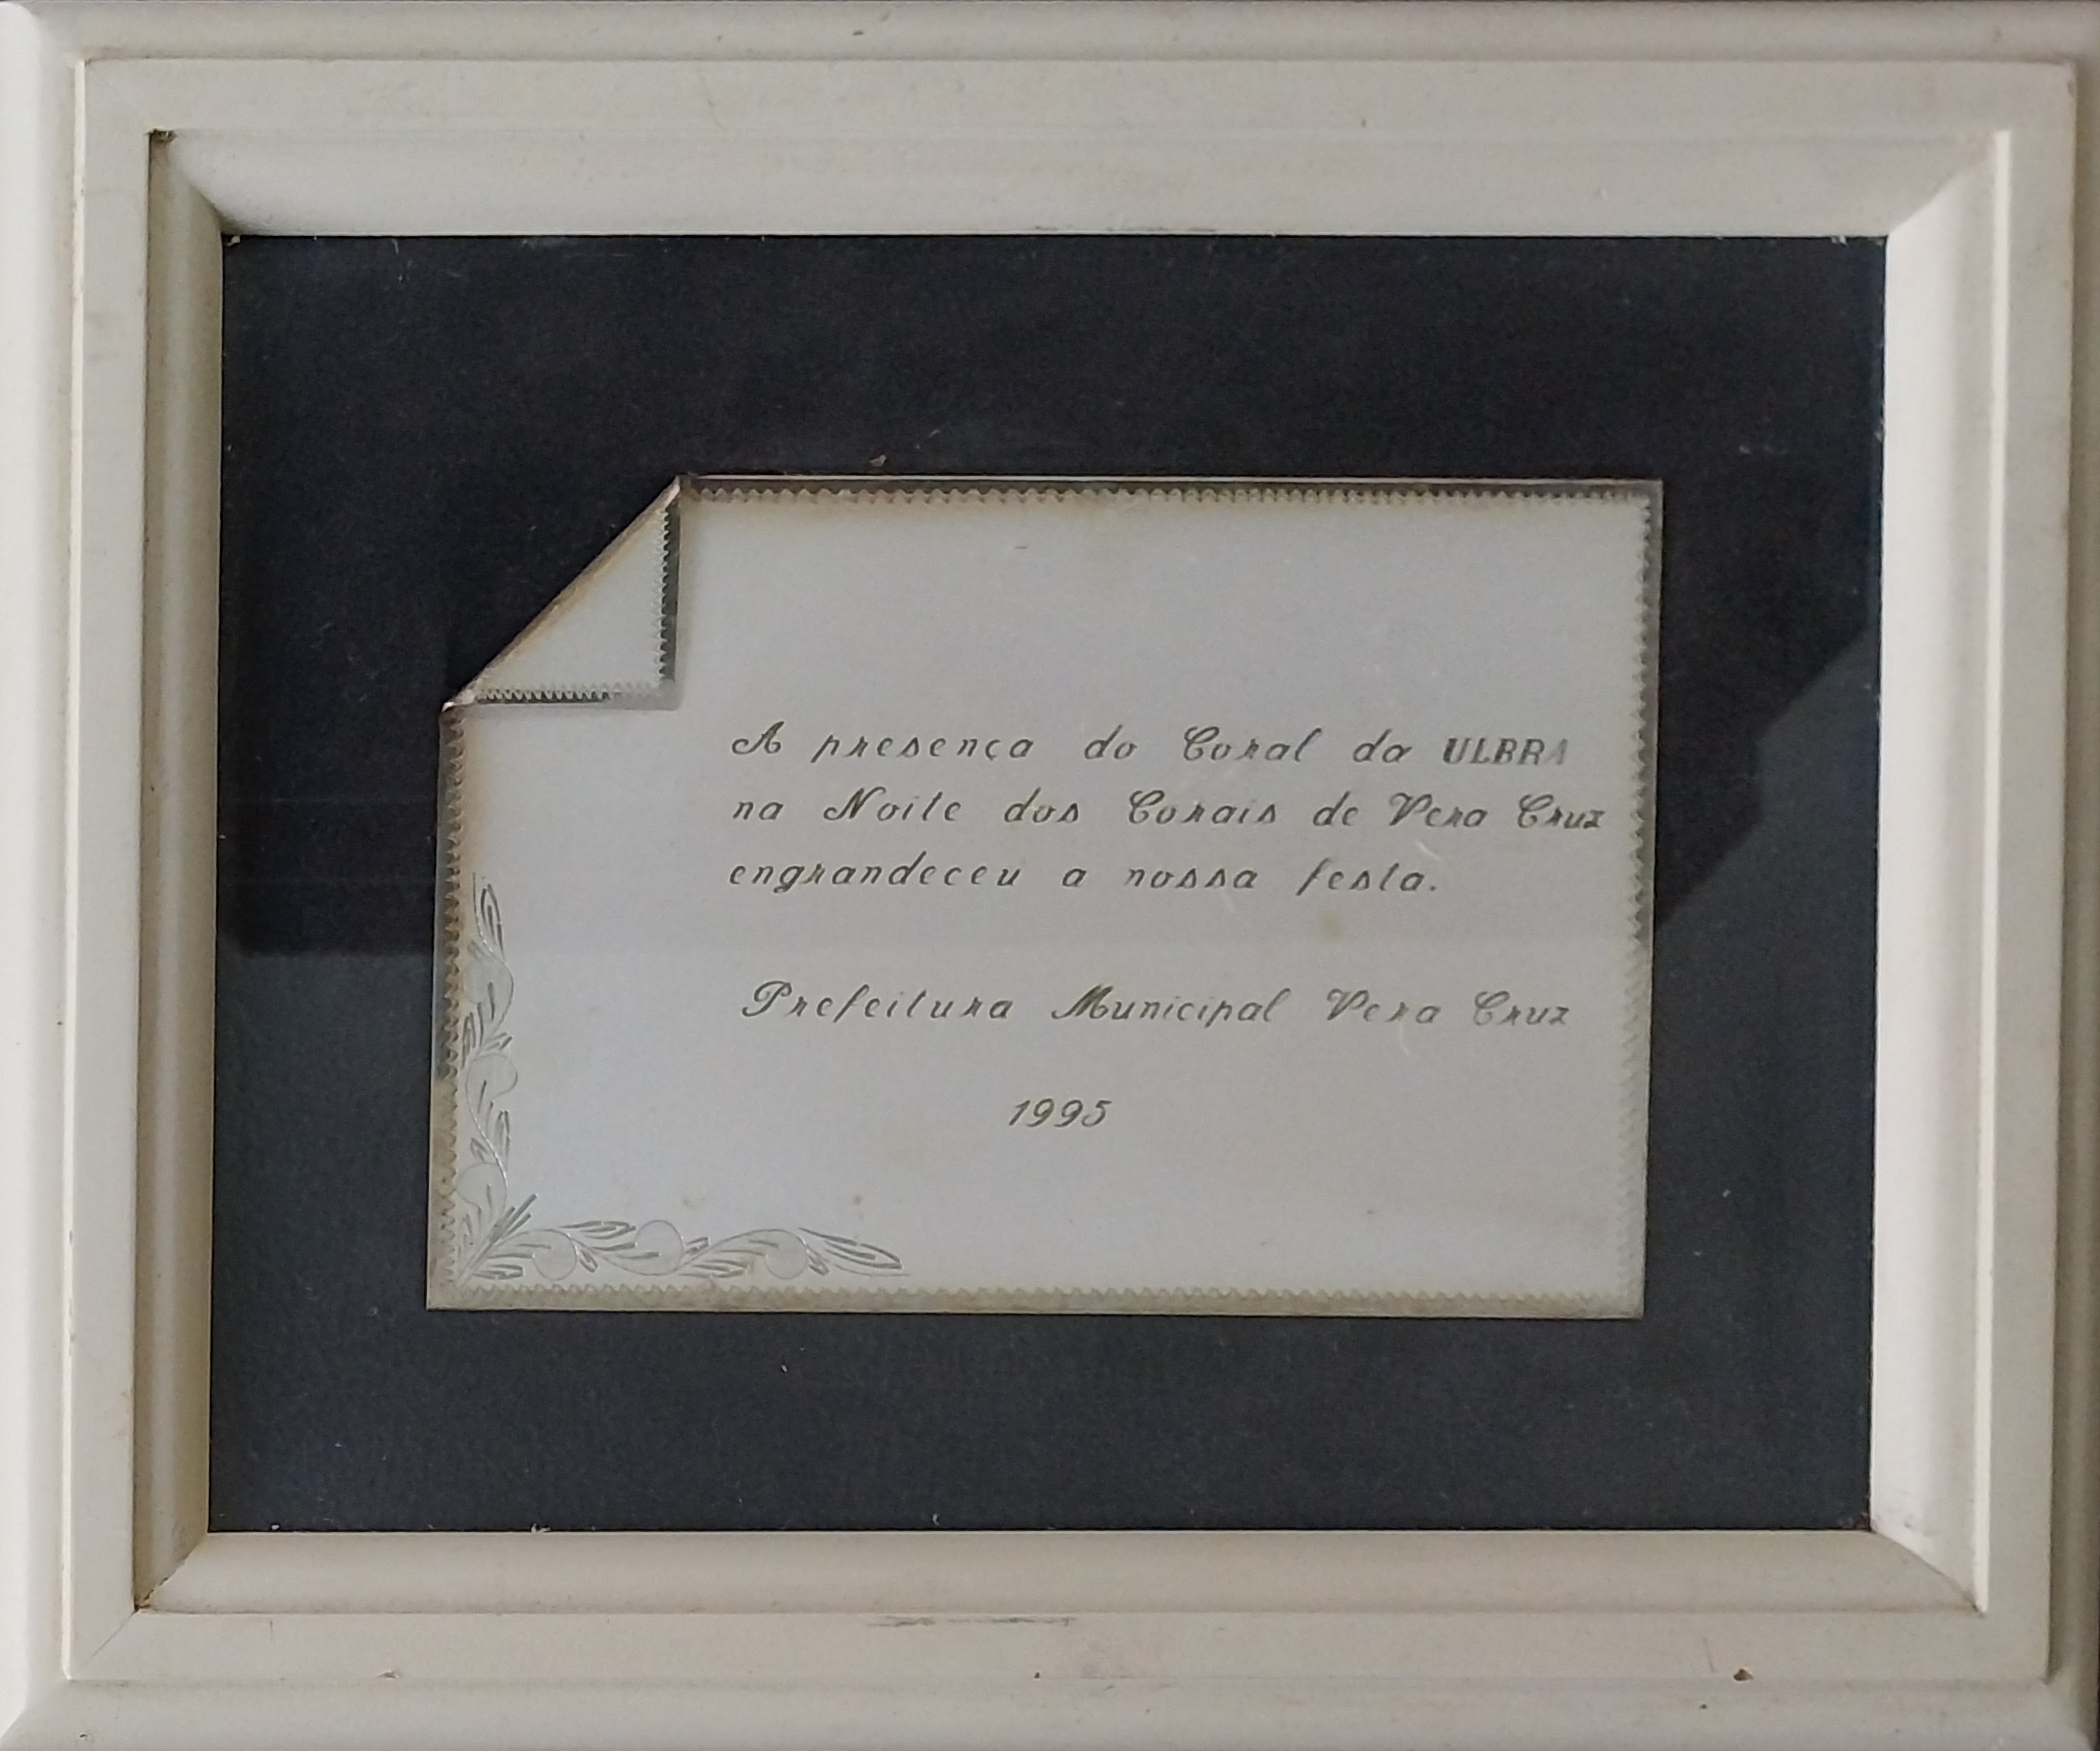 A presença do Coral da ULBRA
na Noite dos Corais de Vera Cruz
engrandeceu a nossa festa.
Prefeitura Municipal Vera Cruz
1995